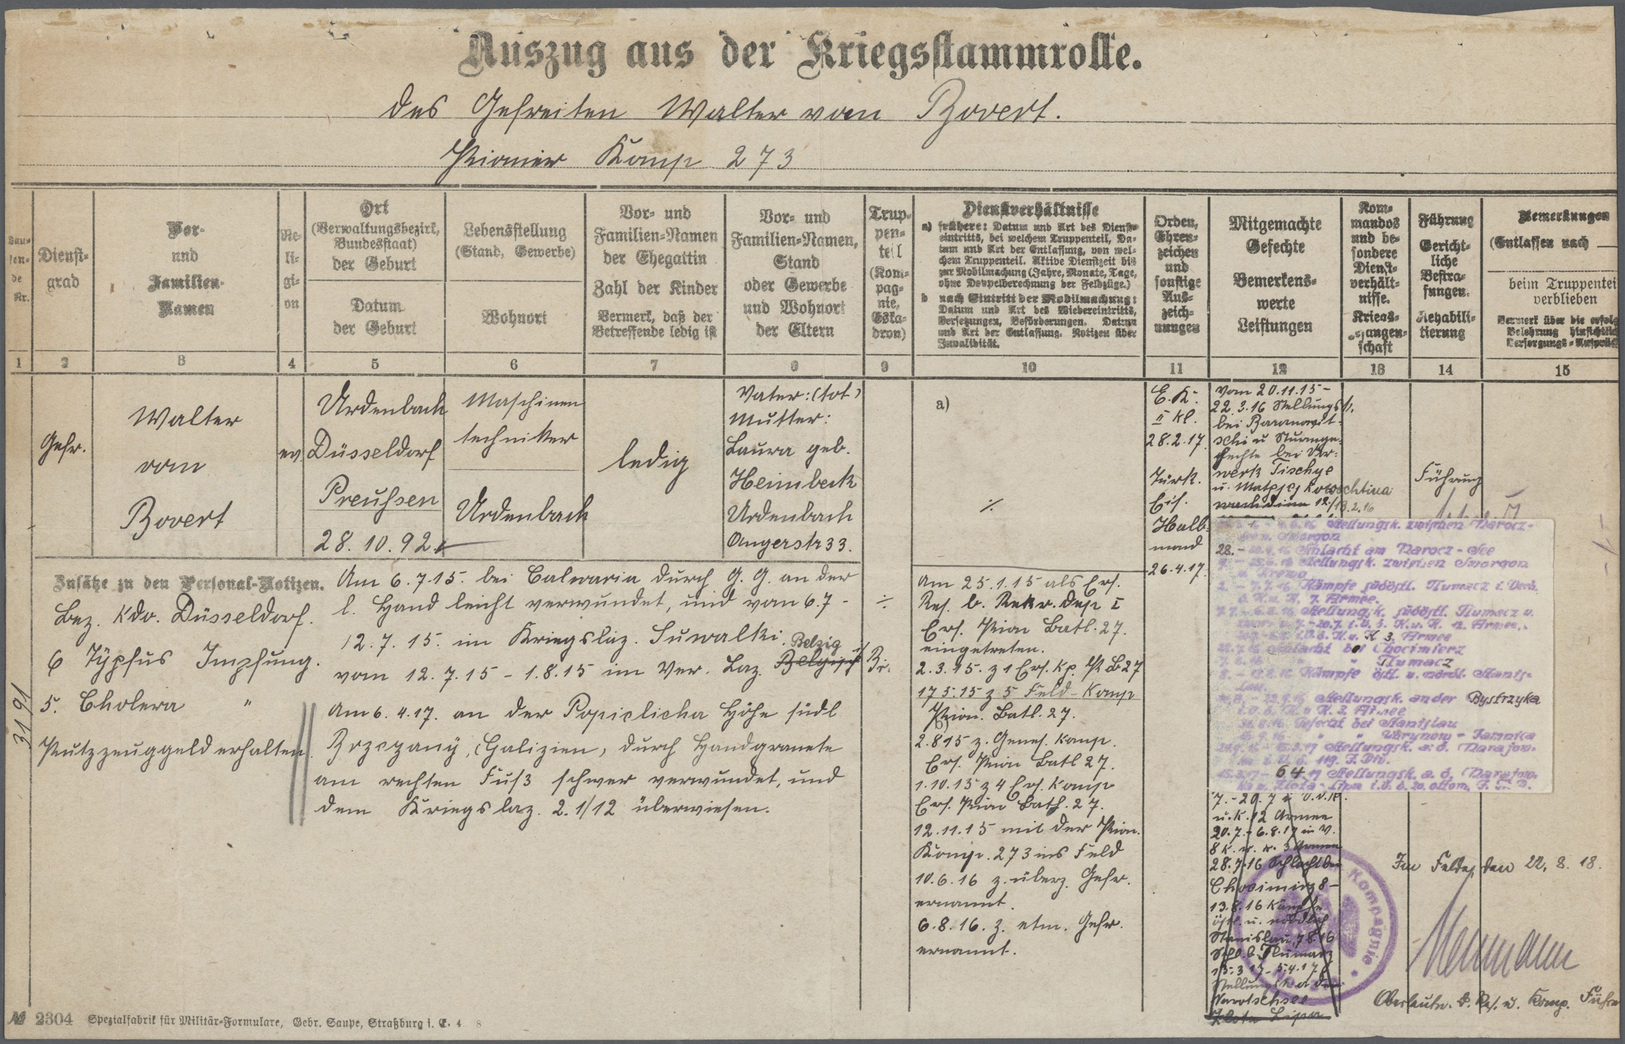 Auszug aus der Kriegsstammrolle.
des Gefreiten Walter vom Bovert.
Pionier Komp 273
Lau-
fen-
de
Nr.
Dienst-
grad
Vor-
und
Familien-
Namen
Re-
li-
gi-
on
Ort
(Verwaltungsbezirk,
Bundesstaat)
der Geburt
Datum
der Geburt
Lebensstellung
(Stand, Gewerbe)
Wohnort
Vor- und
Familien-Namen
der Ehegattin
Zahl der Kinder
Vermerk, daß der
Betreffende ledig ist
Vor- und
Familien-Namen,
Stand
oder Gewerbe
und Wohnort
der Eltern
Trup-
pen-
teil
(Kom-
pag-
nie,
Eska-
dron)
Dienstverhältnisse
a) frühere: Datum und Art des Dienst-
eintritts, bei welchem Truppenteil, Da-
tum und Art der Entlassung, von wel-
chem Truppenteil. Aktive Dienstzeit bis
zur Mobilmachung (Jahre, Monate, Tage,
ohne Doppelberechnung der Feldzüge.)
b nach Eintritt der Mobilmachung:
Datum und Art des Wiedereintritts,
Versetzungen, Beförderungen. Datum
und Art der Entlassung. Notizen über
Invalidität.
Orden,
Ehren-
zeichen
und
sonstige
Aus-
zeich-
nungen
Mitgemachte
Gefechte
Bemerkens-
werte
Leistungen
Kom-
mandos
und be-
sondere
Dienst-
verhält-
nisse.
Kriegs-
gefangen-
schaft
Führung
Gericht-
liche
Bestra-
fungen.
Rehabili-
tierung
Bemerkungen
(Entlassen nach
beim Truppentei
verblieben
Vermerk über die erfolg
Belehrung hinsichtlich
Versorgungs-Ansprüch
1 2 3 4 5 6 7 8 9 10 11 12 13 14 15
Gefr.
Walter
vom
Bovert
ev.
Urdenbach
Düsseldorf
Preußen
28. 10. 92
Maschinen
techniker
Urdenbach
ledig
Vater: (tot)
Mutter:
Laura geb.
Heimbeck
Urdenbach
Angerstr 33.
a)
E. K.
II Kl.
28.2.17.
Türk.
Eis.
Halb-
mond
26.4.17.
Vom 20.11.15 -
22.3.16 Stellungsk.
bei Baranowit-
schi u Sturmge-
fechte bei Vor-
werk Tischge
Führung
Zusätze zu den Personal-Notizen.
Bez. Kdo. Düsseldorf.
6 Typfus Impfung.
5. Cholera "
Putzzeuggeld erhalten
3191
Am 6.7.15. bei Calvaria durch G. G. an der
l. Hand leicht verwundet, und vom 6.7 -
12. 7. 15. im Kriegslaz. Suwalki.
Belzig
vom 12. 7. 15 - 1. 8. 15 im Ver. Laz.
Am 6. 4. 17. an der Popielicha Höhe südl
Brzezany, Galizien, durch Handgranate
am rechten Fuß schwer verwundet, und
dem Kriegslaz. 2. 1/12 überwiesen.
Am 25.1.15 als Ers.
Res. b. Rekr. Dep I
Ers. Pion Batl. 27.
eingetreten.
2.3.15. z 1 Ers. Kp. P. B 27
17 5.15 z 5 Feld-Komp
Pion. Batl. 27.
2.8 15 z. Genes. Komp.
Ers. Pion Batl 27.
1.10.15 z 4 Ers. Komp
Ers. Pion Batl. 27.
12.11.15 mit der Pion.
Komp. 273 ins Feld
10.6.16 z. überz. Gefr.
ernannt.
6.8.16. z. etm. Gefr.
ernannt.
Stellungsk. zwischen Narocz-
Schlacht am Narocz-See
Stellungsk. zwischen Smorgon
u. Krewo
Kämpfe südöstl. Tlumacz
Stellungsk. südöstl. Tlumacz u.
Schlacht bei Chocimierz
" " Tlumacz
Stellungsk. an der Bystrzyka
Gefecht bei Stanislau
Stellungsk. a. d. Narajow.
6 4 17 Stellungsk. a. d. Narajow.
20.7. - 6.8.17
13.8.16 Kämpfe
östl. u. nördlich
Kompagnie
Im Felde, den 22. 8. 18.
Neumann
Oberleutn. d. Res. u. Komp. Führ
№ 2304 Spezialfabrik für Militär-Formulare, Gebr. Saupe, Straßburg i. E. 4 8